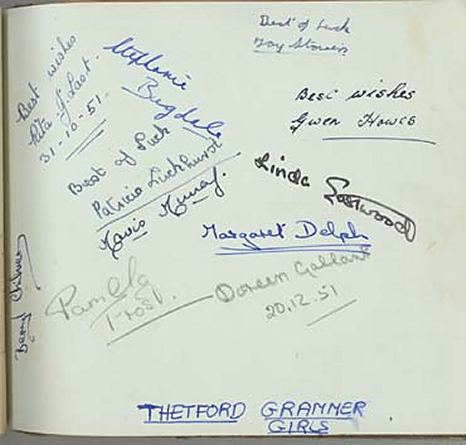 Best of Luck
Joy Stowers
Best wishes
Rita J. Last.
31-10-51.
Stephanie
Bugdale
Best wishes
Gwen Howes
Best of Luck
Patricia Lickhurst
Mavis Murray.
Linda Eastwood
Margaret Delph
Pamela
Frost.
Doreen Gallant
20.12.51
Beryl
THETFORD GRAMMER
GIRLS